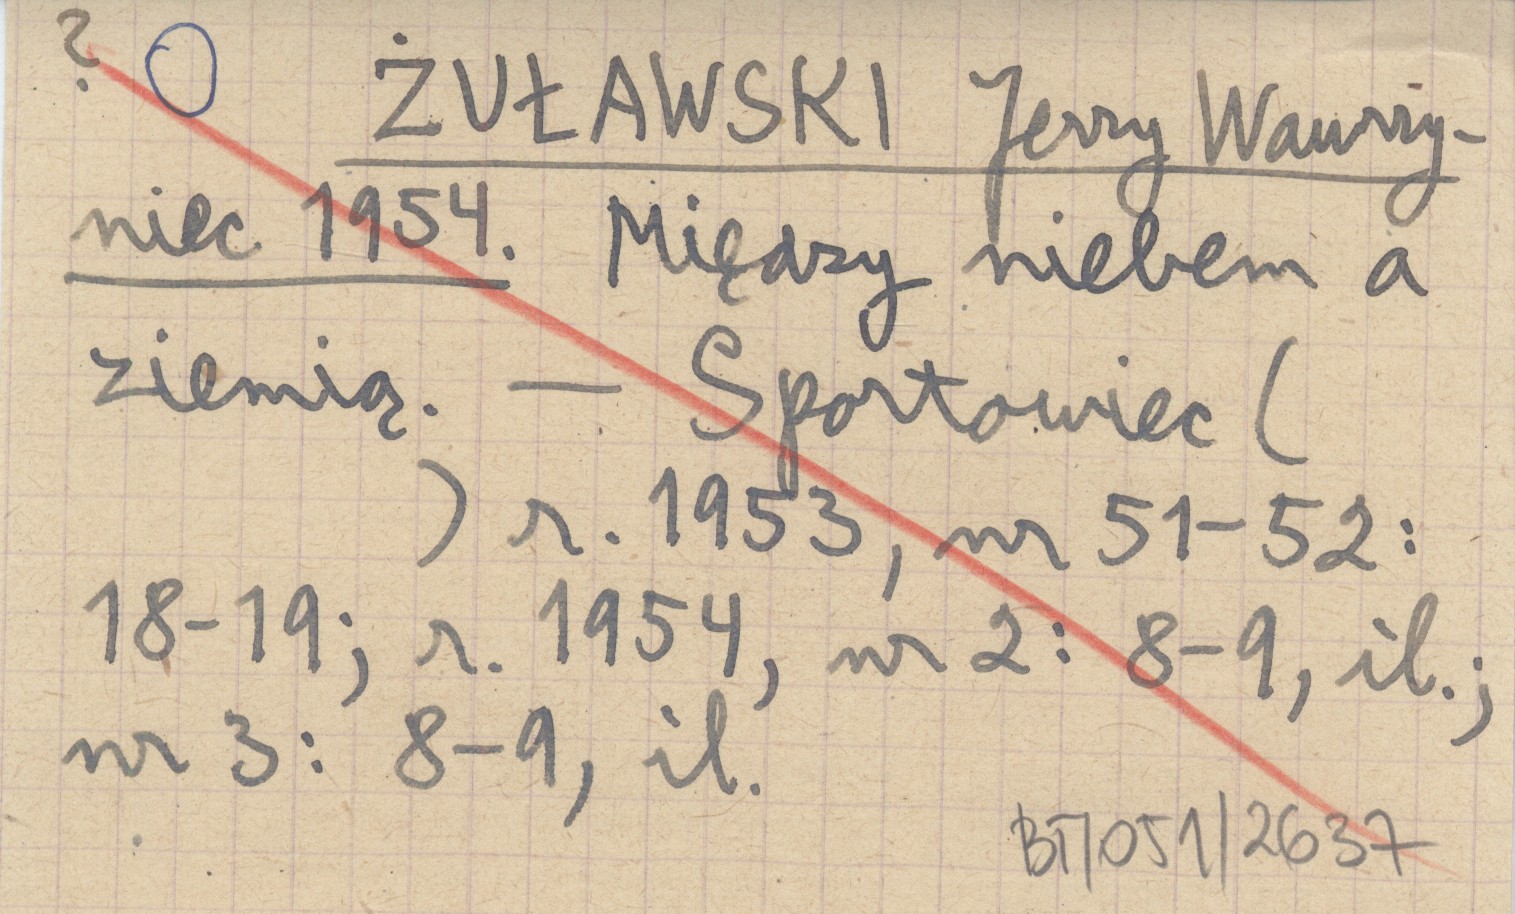 ? O ŻUŁAWSKI Jerzy Wawrzy-
niec 1954. Między niebem a
ziemią. — Sportowiec (
) r. 1953, nr 51-52:
18-19; r. 1954, nr 2: 8-9, il.;
nr 3: 8-9, il.
BT/051/2637